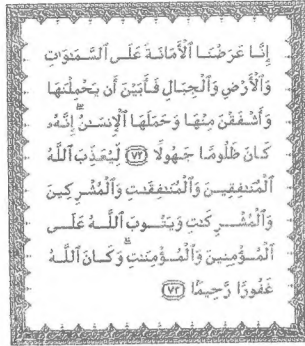 إِنَّا عَرَضْنَا ٱلْأَمَانَةَ عَلَى ٱلسَّمَٰوَٰتِ
وَٱلْأَرْضِ وَٱلْجِبَالِ فَأَبَيْنَ أَن يَحْمِلْنَهَا
وَأَشْفَقْنَ مِنْهَا وَحَمَلَهَا ٱلْإِنسَٰنُ إِنَّهُۥ
كَانَ ظَلُومًا جَهُولًا ٧٢ لِّيُعَذِّبَ ٱللَّهُ
ٱلْمُنَٰفِقِينَ وَٱلْمُنَٰفِقَٰتِ وَٱلْمُشْرِكِينَ
وَٱلْمُشْرِكَٰتِ وَيَتُوبَ ٱللَّهُ عَلَى
ٱلْمُؤْمِنِينَ وَٱلْمُؤْمِنَٰتِ ۗ وَكَانَ ٱللَّهُ
غَفُورًا رَّحِيمًا ٧٣